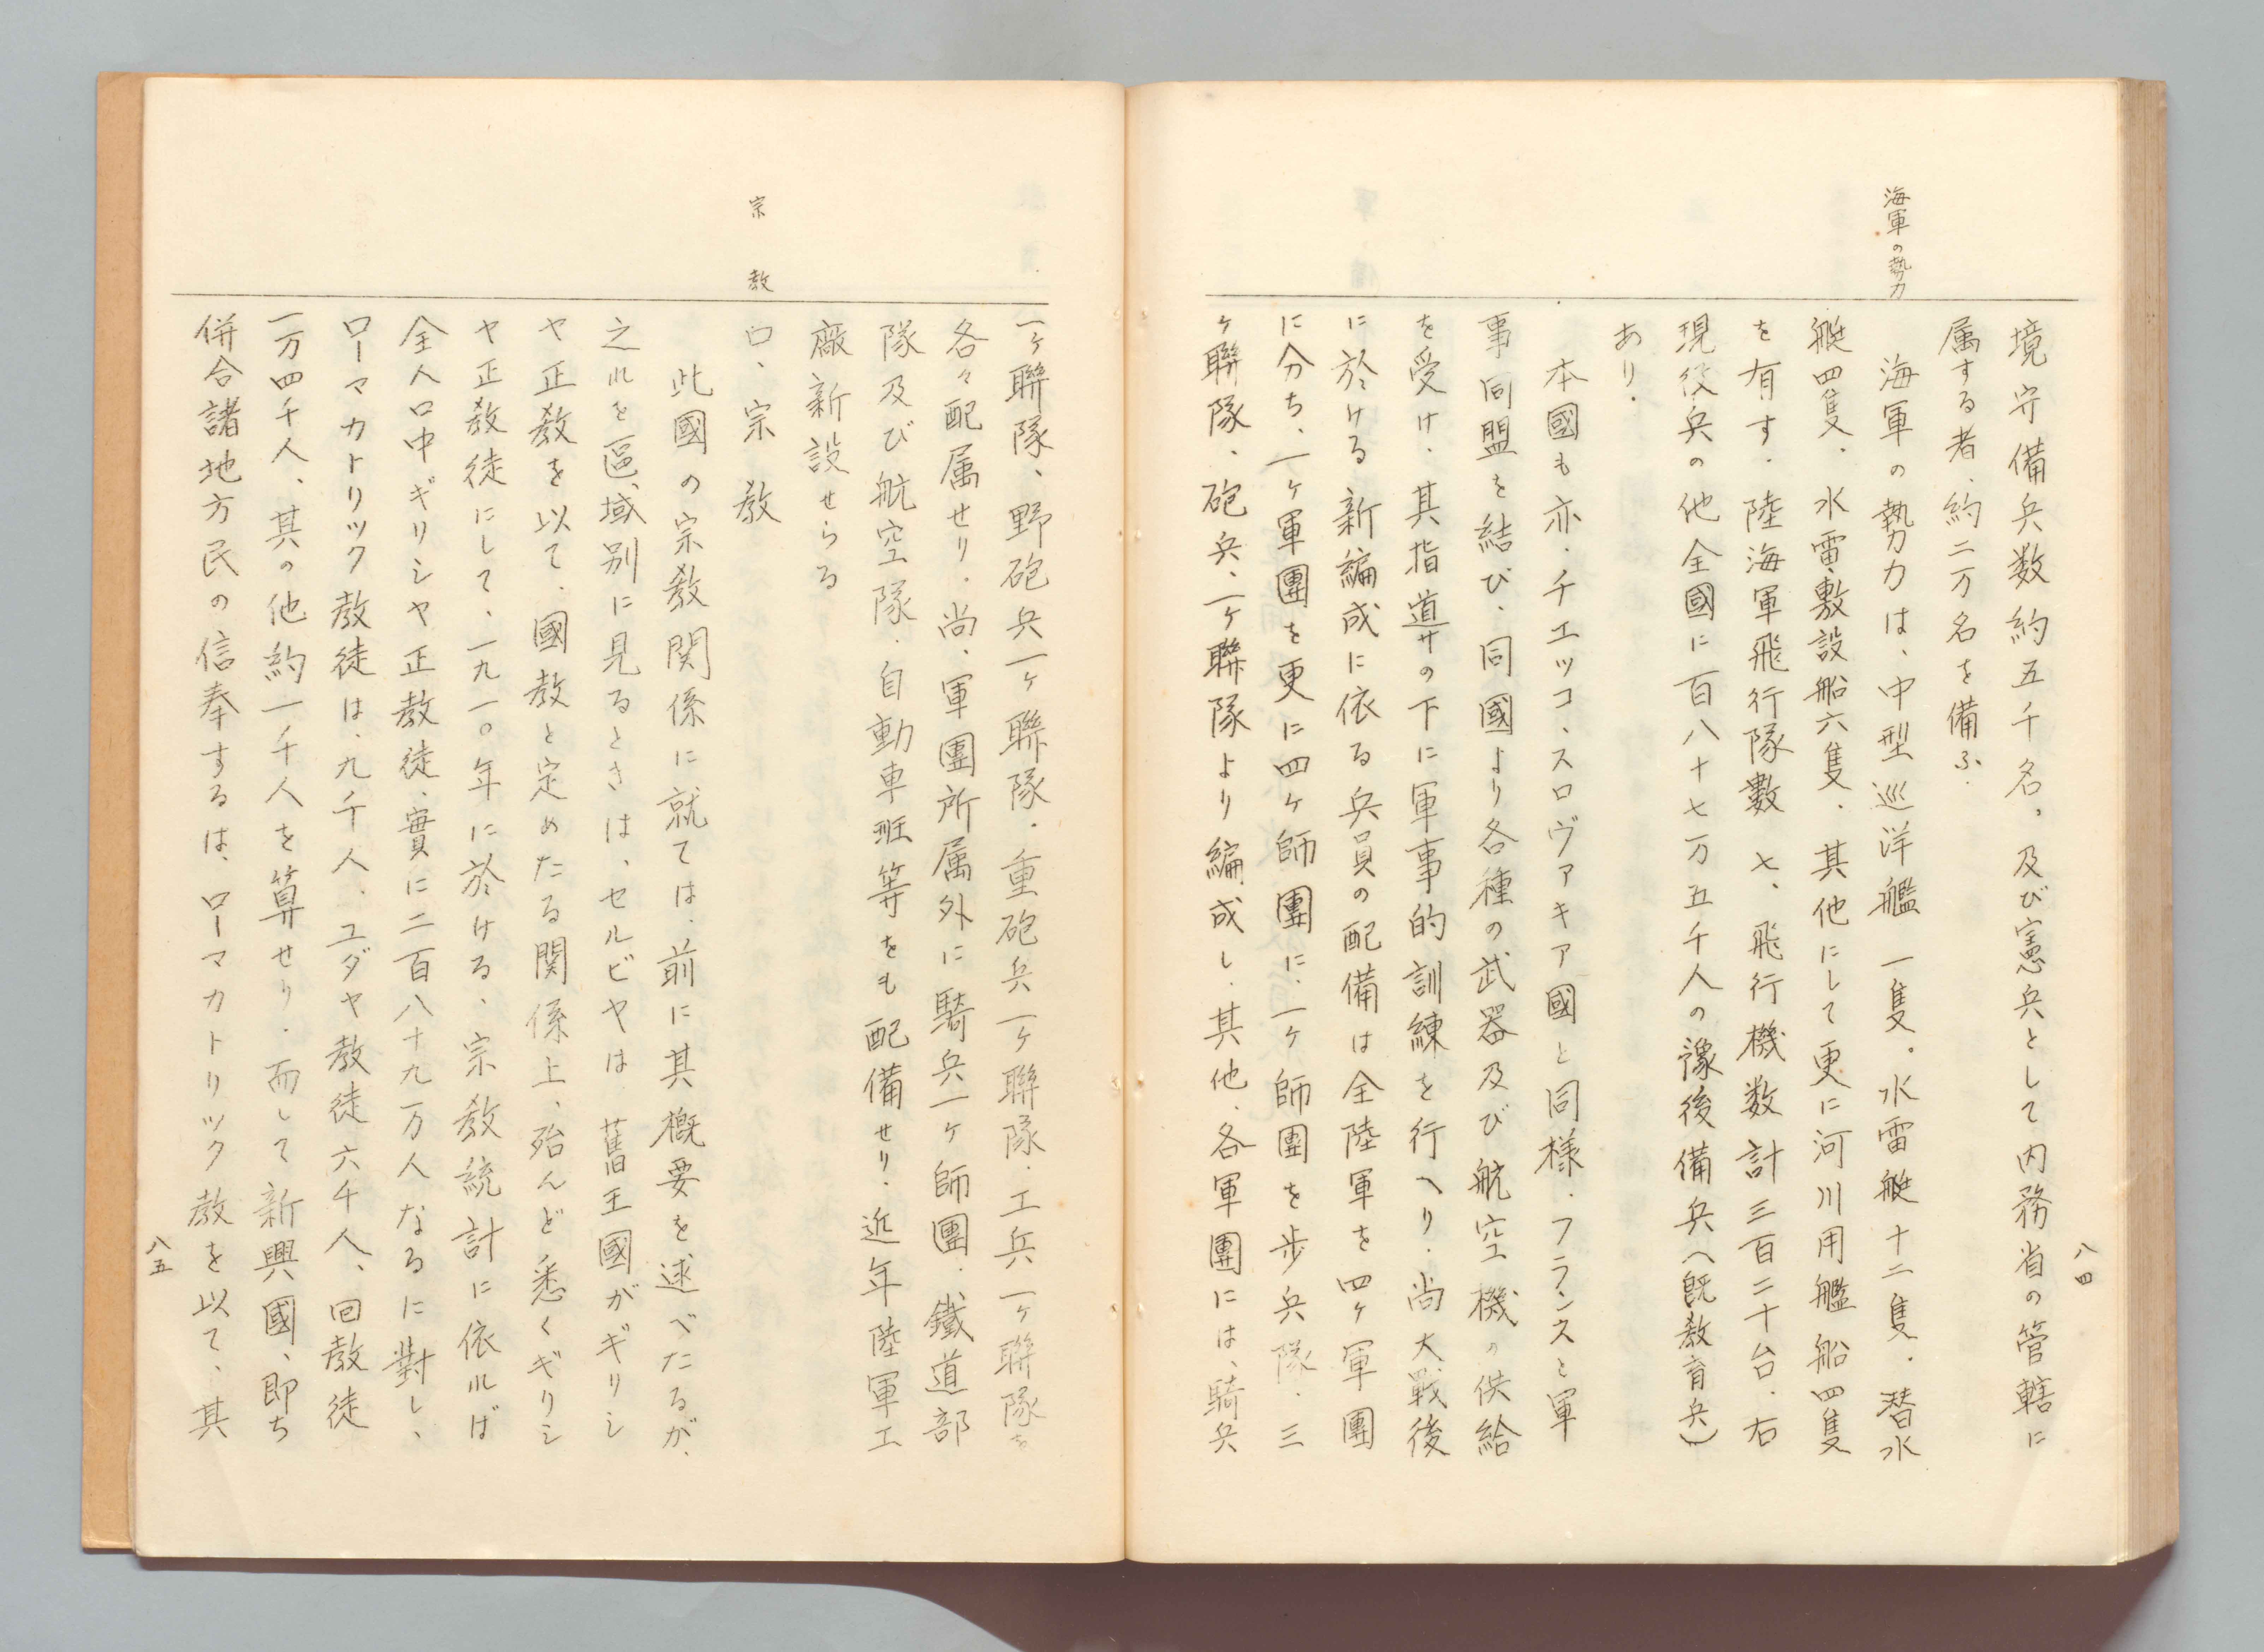 八四
海軍の勢力
境守備兵数約五千名、及び憲兵として内務省の管轄に
属する者、約二万名を備ふ.
海軍の勢力は、中型巡洋艦一隻。水雷艇十二隻.潜水
艇四隻.水雷敷設船六隻.其他にして更に河川用艦船四隻
を有す.陸海軍飛行隊數七、飛行機数計三百二十台.右
現役兵の他全國に百八十七万五千人の豫後備兵(既教育兵)
あり.
本國も亦.チエッコ、スロヴァキア國と同様.フランスと軍
事同盟を結び、同國より各種の武器及び航空機の供給
を受け.其指導サの下に軍事的訓練を行へり.尚大戰後
に於ける新編成に依る兵員の配備は全陸軍を四ヶ軍團
に分ち、一ヶ軍團を更に四ヶ師團に.一ヶ師團を歩兵隊.三
ヶ聯隊、砲兵、一ヶ聯隊より編成し.其他.各軍團には、騎兵
宗教
一ヶ聯隊、野砲兵一ヶ聯隊.重砲兵一ヶ聯隊.工兵一ヶ聯隊を
各々配属せり.尚、軍團所属外に騎兵一ヶ師團.鐵道部
隊及び航空隊.自動車班等をも配備せり.近年陸軍工
廠新設せらる
ロ、宗教
此國の宗教関係に就ては.前に其概要を述べたるが.
之ルを區、域別に見るときは、セルビヤは舊王國がギリシ
ヤ正教を以て.國教と定めたる関係上、殆んど悉くギリシ
ヤ正教徒にして、一九一〇年に於ける、宗教統計に依ルば
全人口中ギリシヤ正教徒、實に二百八十九万人なるに對し、
ローマカトリック教徒は、九千人、ユダヤ教徒六千人、回教徒
一万四千人、其の他約一千人を算せり.而して新興國、即ち
併合諸地方民の信奉するは、ローマカトリック教を以て、其
八五